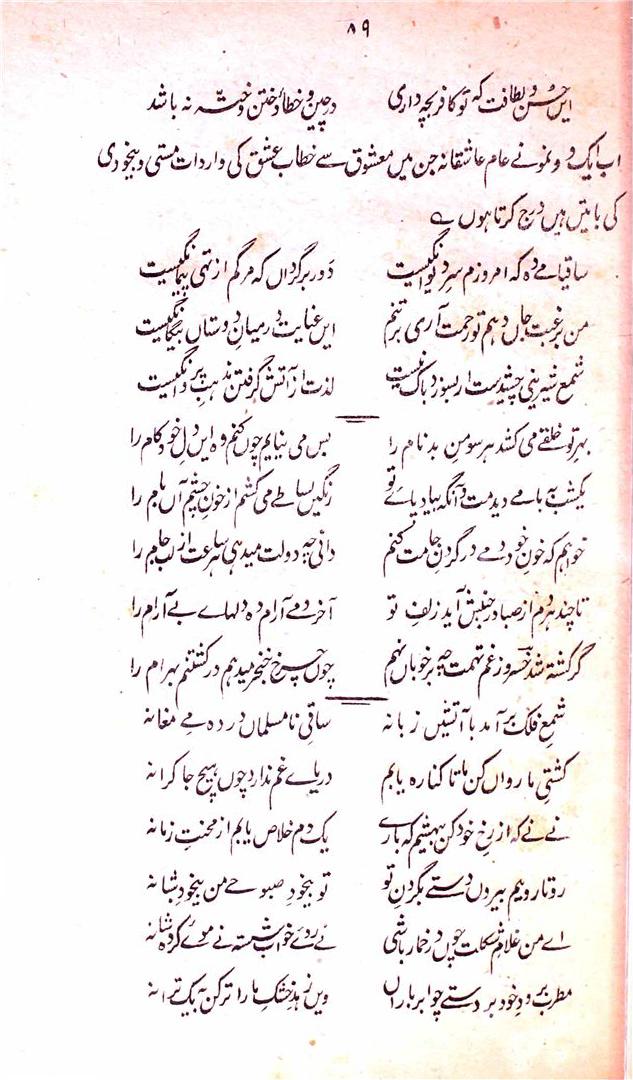 ۸۹
ایں حسن و لطافت کہ تو کافر بچہ داری در چین و خطا و ختن و خمّہ نہ باشد
اب ایک دو نمونے عام عاشقانہ جن میں معشوق سے خطاب عشق کی واردات مستی و بیخودی
کی باتیں ہیں درج کرتا ہوں ے
ساقیا مے دہ کہ امروزم سرِ دیوانگیست دور برگرداں کہ مرگم از تہی پیمانگیست
من برغبت جاں دہم تو رحمت آری برتنم ایں عنایت درمیانِ دوستاں بیگانگیست
شمع شیرینی چشیدست ار بسوزد باک نیست لذت از آتش گرفتن مذہبِ پروانگیست
بہرِ تو خلقے می کشد ہر سو منِ بدنام را بس می نیایم چوں کنم وہ ایں دلِ خودکام را
یکشب بہ بامے دیدمت آنگہ بیاد پائے تو رنگیں بساطے می کشم از خونِ چشم آں بام را
خواہم کہ خونِ خود دمے در گردنِ جامت کنم دانی چہ دولت میدہی ہر ساعت از لب جام را
تا چند ہر دم از صبا در جنبش آید زلفِ تو آخر دمے آرام دہ دلہاے بے آرام را
گر کشتہ شد خسرو ز غم تہمت چہ بر خوباں نہم چوں چرخ خنجر میدہم در کشتنم بہرام را
شمعِ فلک برآمد با آتشیں زبانہ ساقیِ نامسلماں در دہ مے مغانہ
کشتیِ ما رواں کن تا ما کنارہ یابم دریاے غم ندارد چوں ہیچ جا کرانہ
نے نے کہ از رخِ خود کن بیہشم کہ بارے یک دم خلاص یابم از محنتِ زمانہ
رو تا رویم بیروں دستے بگردنِ تو تو بیخودِ صبوحے من بیخودِ شبانہ
اے من غلامِ شکلت چوں در خمار باشی نے روے خواب شستہ نے موے کردہ شانہ
مطرب برودِ خود بر دستے چو ابر باراں ویں زہدِ خشکِ ما را تر کن بہ یک ترانہ